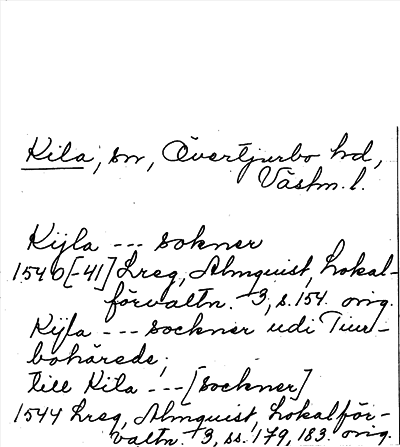 Kila, sn, Övertjurbo hd,
Västm. l.
Kijla --- sokner
1540[-41] Lreg, Almquist, Lokal-
förvaltn. 3, s. 154. orig.
Kijla --- sockner udi Tiur-
bohärede,
till Kila --- [sockner]
1544 Lreg, Almquist, Lokalför-
valtn. 3, ss. 179, 183. orig.